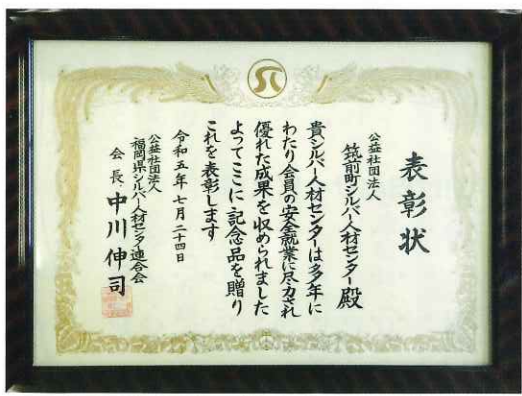 表彰状
公益社団法人
筑前町シルバー人材センター殿
貴シルバー人材センターは多年に
わたり会員の安全就業に尽力され
優れた成果を収められました
よってここに記念品を贈り
これを表彰します
令和五年七月二十四日
公益社団法人
福岡県シルバー人材センター連合会
会長 中川伸司